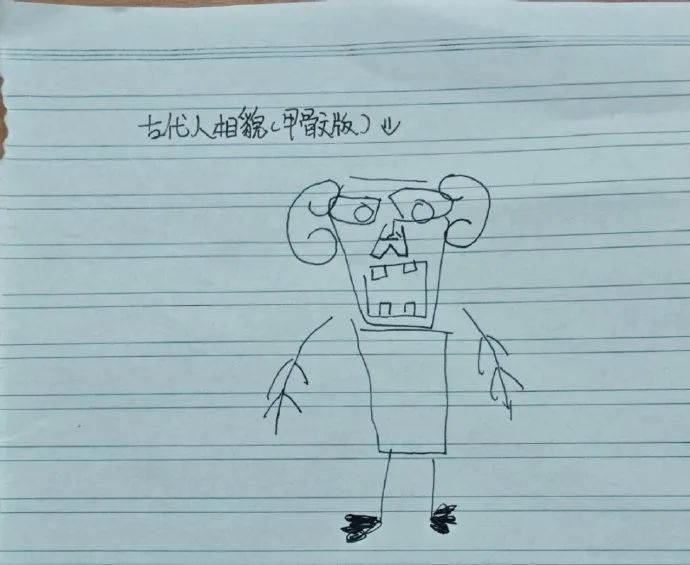 古代人相貌(甲骨文版)↓